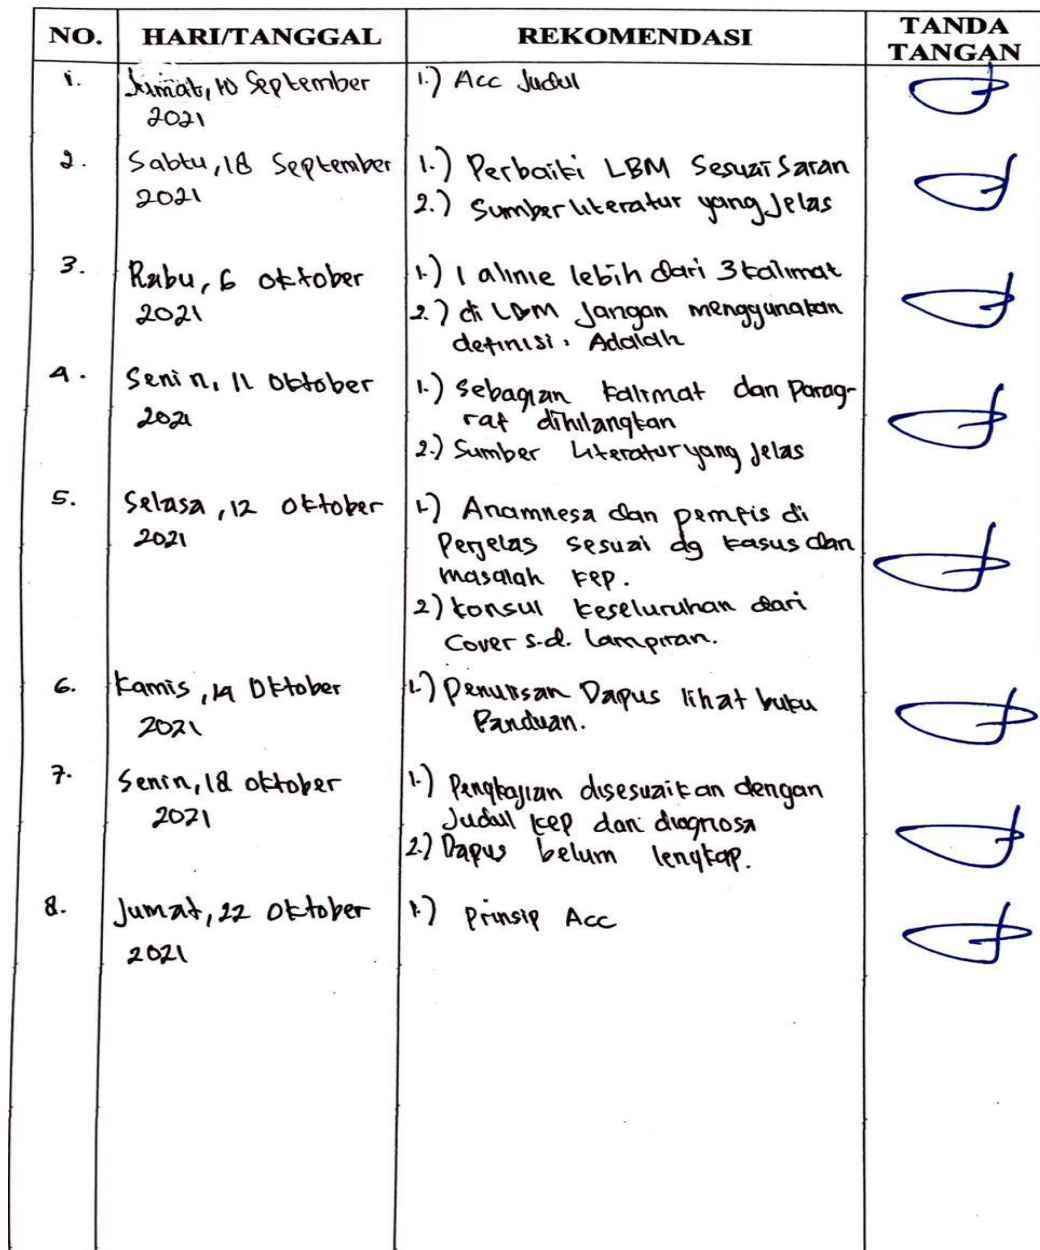 NO. HARI/TANGGAL REKOMENDASI TANDA TANGAN
1. Jumat, 10 September 1.) Acc Judul
2021
2. Sabtu, 18 September 1.) Perbaiki LBM Sesuai Saran
2021 2.) Sumber literatur yang Jelas
3. Rabu, 6 oktober 1.) 1 alinie lebih dari 3 kalimat
2021 2.) di LBM Jangan menggunakan
definisi. Adalah
4. Senin, 11 Oktober 1.) Sebagian kalimat dan Parag-
2021 raf dihilangkan
2.) Sumber Literatur yang Jelas
5. Selasa, 12 Oktober 1.) Anamnesa dan pemfis di
2021 Perjelas sesuai dg kasus dan
masalah kep.
2) konsul keseluruhan dari
Cover s.d. Lampiran.
6. Kamis, 14 Oktober 1.) Penulisan Dapus lihat buku
2021 Panduan.
7. Senin, 18 oktober 1.) Pengkajian disesuaikan dengan
2021 Judul kep dan diagnosa
2.) Dapus belum lengkap.
8. Jumat, 22 Oktober 1.) Prinsip Acc
2021